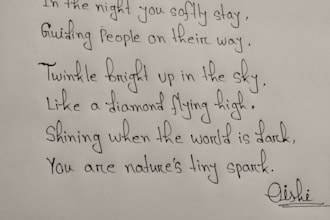 In the night you softly stay,
Guiding People on their way.
Twinkle bright up in the sky.
Like a diamond flying high.
Shining when the world is dark,
You are nature's tiny spark.
Oishi